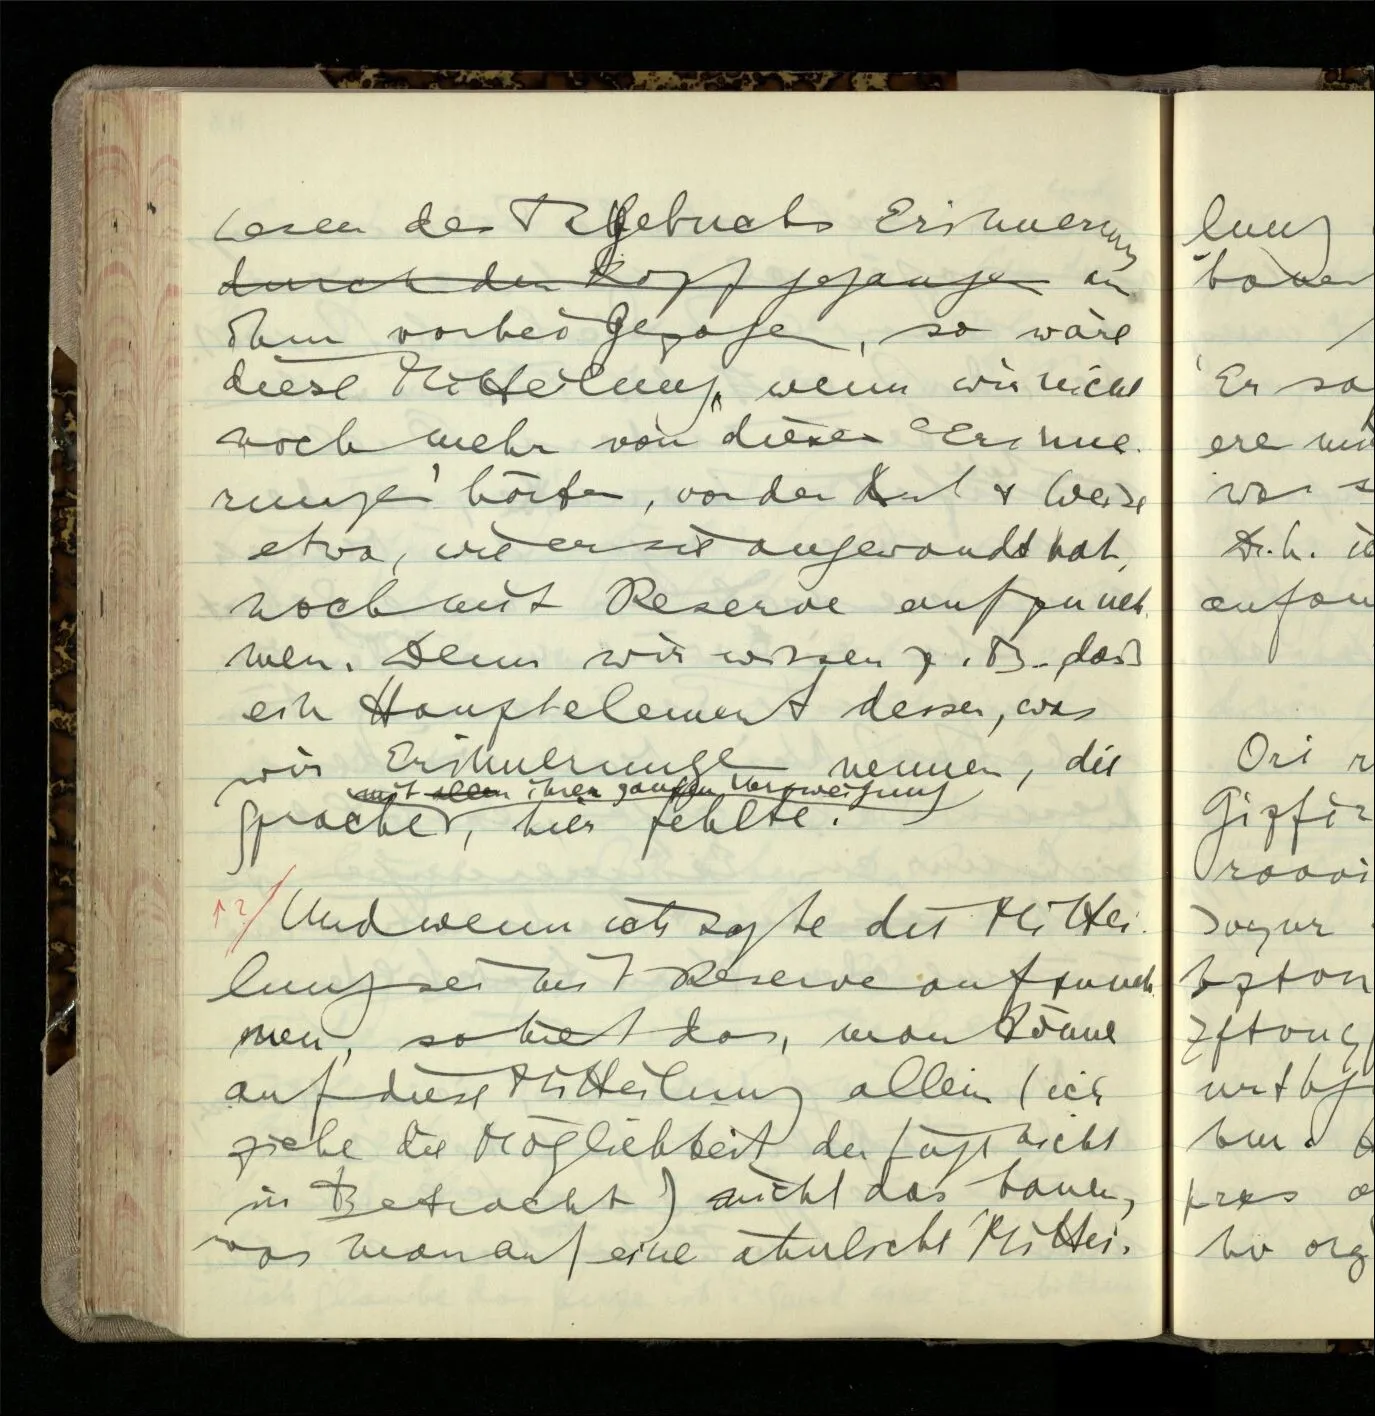 Lesen des Tagebuchs Erinnerung
durch den Kopf gegangen an
ihm vorbei gezogen, so wäre
diese Mitteilung, wenn wir nicht
noch mehr von diesen ‘Erinne-
rungen’ hörten, von der Art & Weise
etwa, wie er sie angewandt hat,
noch mit Reserve aufzuneh-
men. Denn wir wissen z.B. daß
ein Hauptelement dessen, was
wir Erinnerunge nennen, die
mit allen ihrer ganzen Verzweigung
Sprache, hier fehlte.
Und wenn ich sagte die Mittei-
lung sei mit Reserve aufzuneh-
men, so hieß das, man könne
auf diese Mitteilung allein (ich
ziehe die Möglichkeit der Lüge nicht
in Betracht) nicht das bauen,
was man auf eine ähnliche Mittei-
lung
bauen
Er sa
ere
was s
D.h. i
anfan
Ori r
Gizfir
roooi